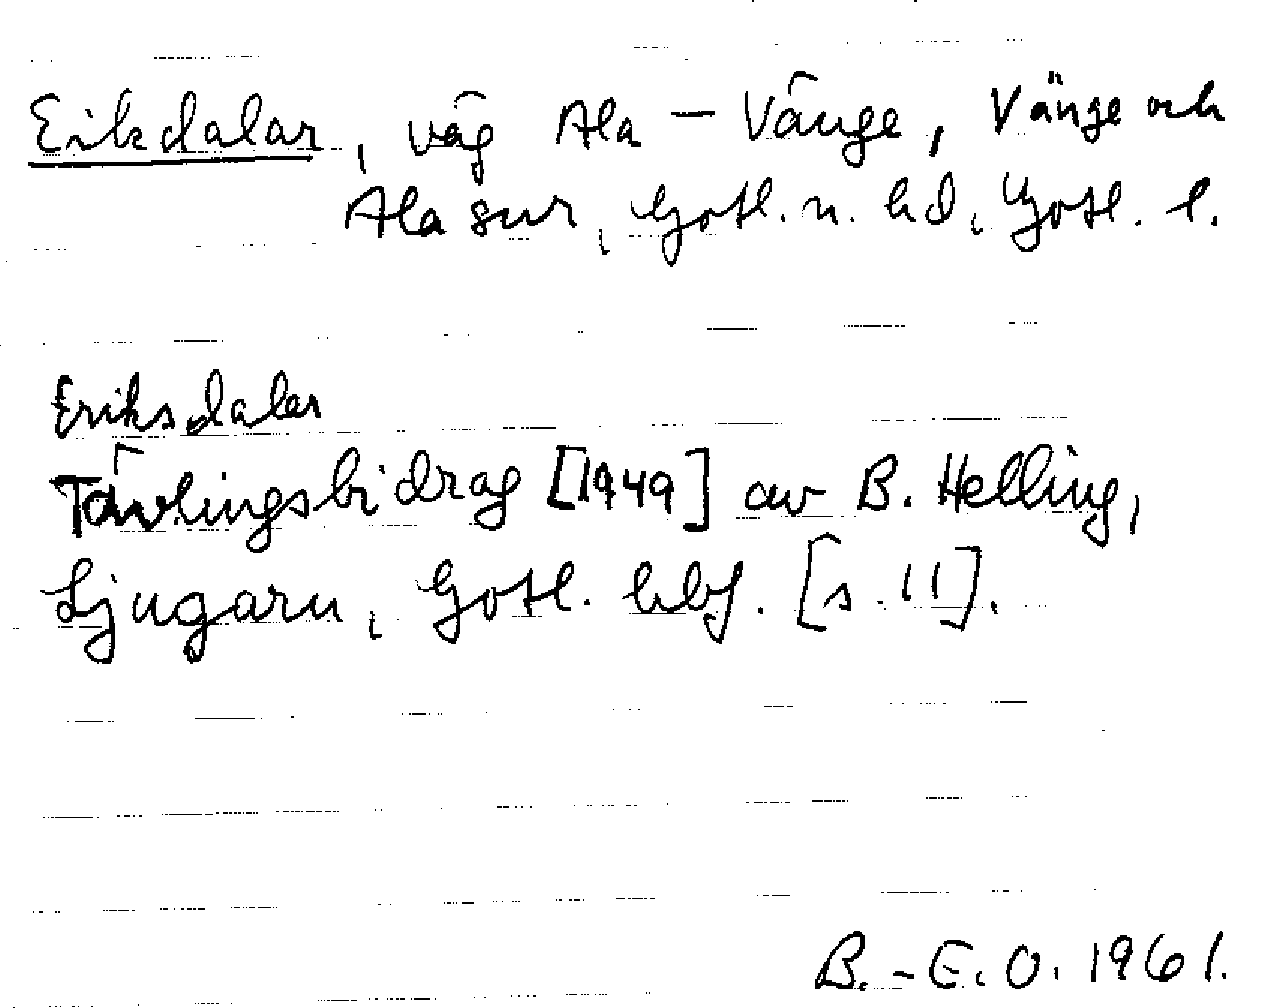 Eikdalar, väg Ala - Vänge, Vänge och
Ala snr, Gotl. n. hd, Gotl. l.
Eriksdalar
Tävlingsbidrag [1949] av B. Helling,
Ljugarn, Gotl. hbf. [s. 11].
B.-E.O. 1961.